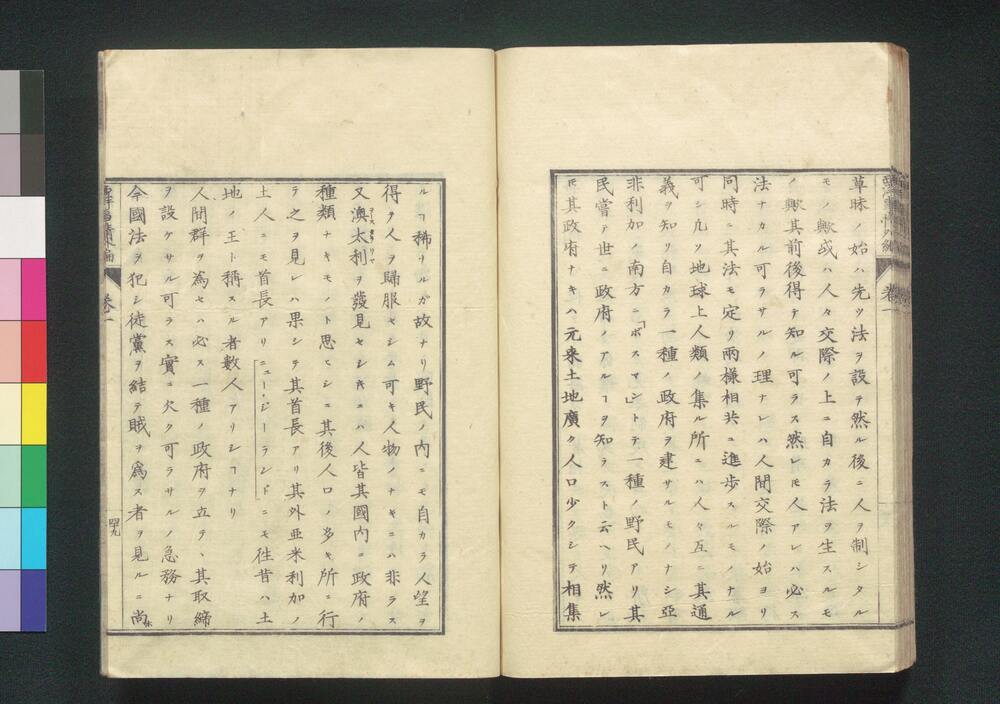 草昧ノ始ハ先ツ法ヲ設テ然ル後ニ人ヲ制シタル
モノ歟或ハ人々交際ノ上ニ自カラ法ヲ生スルモ
ノ歟其前後得テ知ル可ラス然レ𪜈人アレハ必ス
法ナカル可ラサルノ理ナレハ人間交際ノ始ヨリ
同時ニ其法モ定リ兩様相共ニ進歩スルモノナル
可シ凡ソ地球上人類ノ集ル所ニハ人々互ニ其通
義ヲ知リ自カラ一種ノ政府ヲ建サルモノナシ亞
非利加ノ南方ニ「ボスマン」トテ一種ノ野民アリ其
民嘗テ世ニ政府ノアルヿヲ知ラスト云ヘリ然レ
𪜈其政府ナキハ元来土地廣ク人口少クシテ相集
ルヿ稀ナルガ故ナリ野民ノ内ニモ自カラ人望ヲ
得タ人ヲ歸服セシム可キ人物ノナキニハ非ラス
又澳太利ヲ發見セシキニハ人皆其國内ニ政府ノ
種類ナキモノト思ヒシニ其後人口ノ多キ所ニ行
テ之ヲ見レハ果シテ其首長アリ其外亜米利加ノ
土人ニモ首長アリニュー・ジーランドニモ徃昔ハ土
地ノ王ト稱スル者數人アリシヿナリ
人間群ヲ為セハ必ス一種ノ政府ヲ立テ、其取締
ヲ設ケサル可ラス實ニ欠ク可ラサルノ急務ナリ
今國法ヲ犯シ徒黨ヲ結テ賊ヲ為ス者ヲ見ルニ尚
卷一
四九